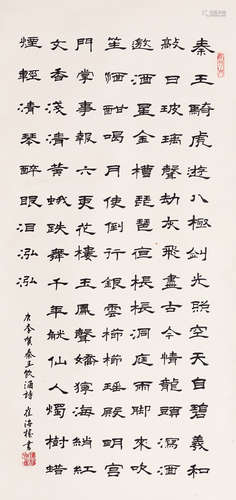 秦王騎虎遊八極劍光照空天自碧義和
敲日玻璃聲劫灰飛盡古今情龍頭瀉酒
邀酒星金槽琵琶棖棖洞庭雨脚來吹
笙酒酣喝月使倒行銀雲櫛櫛瑤殿明宮
門掌事報六更花樓玉鳳聲嬌獰海綃紅
文香淺清黃蛾跌舞千年觥仙人燭樹蠟
煙輕清琴醉眼泪泓泓
唐李賀秦王飲酒詩 崔書